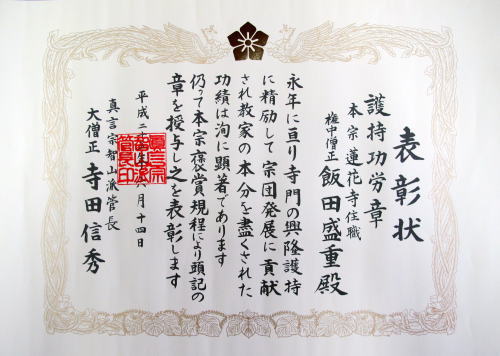 表彰状
護持功労章
本宗 蓮花寺住職
権中僧正 飯田盛重殿
永年に亘り寺門の興隆護持
に精励して宗団発展に貢献
され教家の本分を盡くされた
功績は洵に顕著であります
仍って本宗褒賞規程により頭記の
章を授与し之を表彰します
平成二十 年六月十四日
真言宗智山派管長
大僧正 寺田信秀